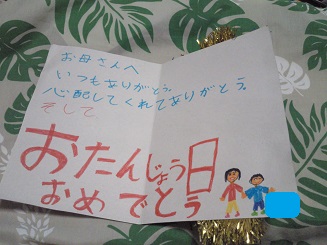 お母さんへ
いつもありがとう。
心配してくれてありがとう。
そして
おたんじょう日
おめでとう